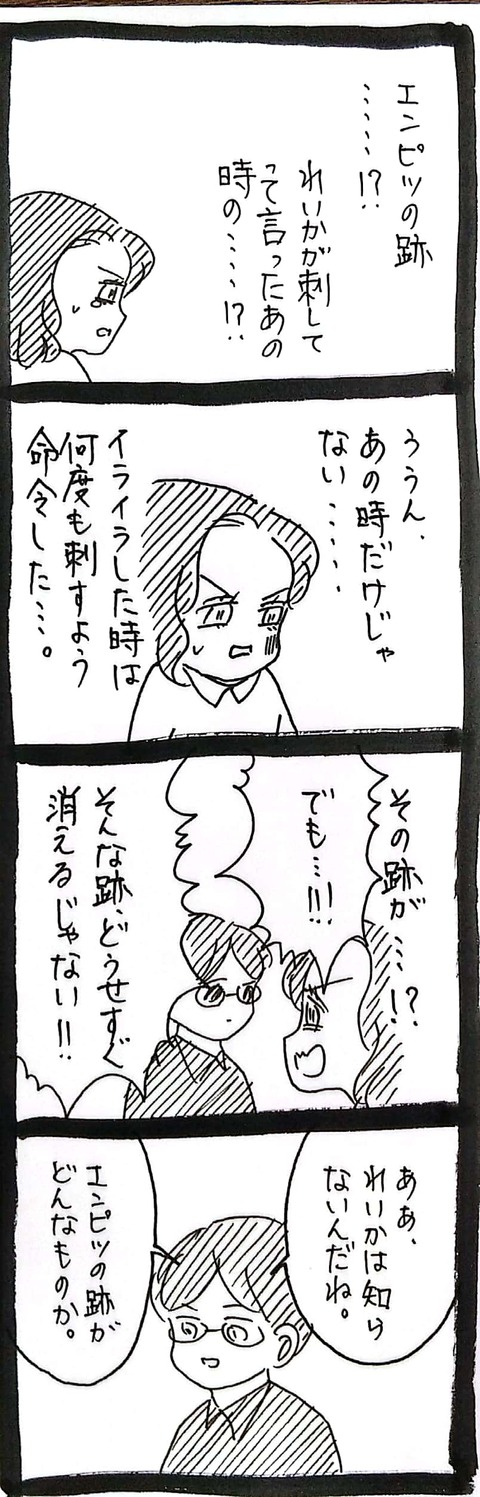 エンピツの跡
……!?
れいかが刺して
って言ったあの
時の……!?
ううん、
あの時だけじゃ
ない……
イライラした時は
何度も刺すよう
命令した…。
その跡が…!?
でも…!!!
そんな跡、どうせすぐ
消えるじゃない!!
ああ、
れいかは知ら
ないんだね。
エンピツの跡が
どんなものか。